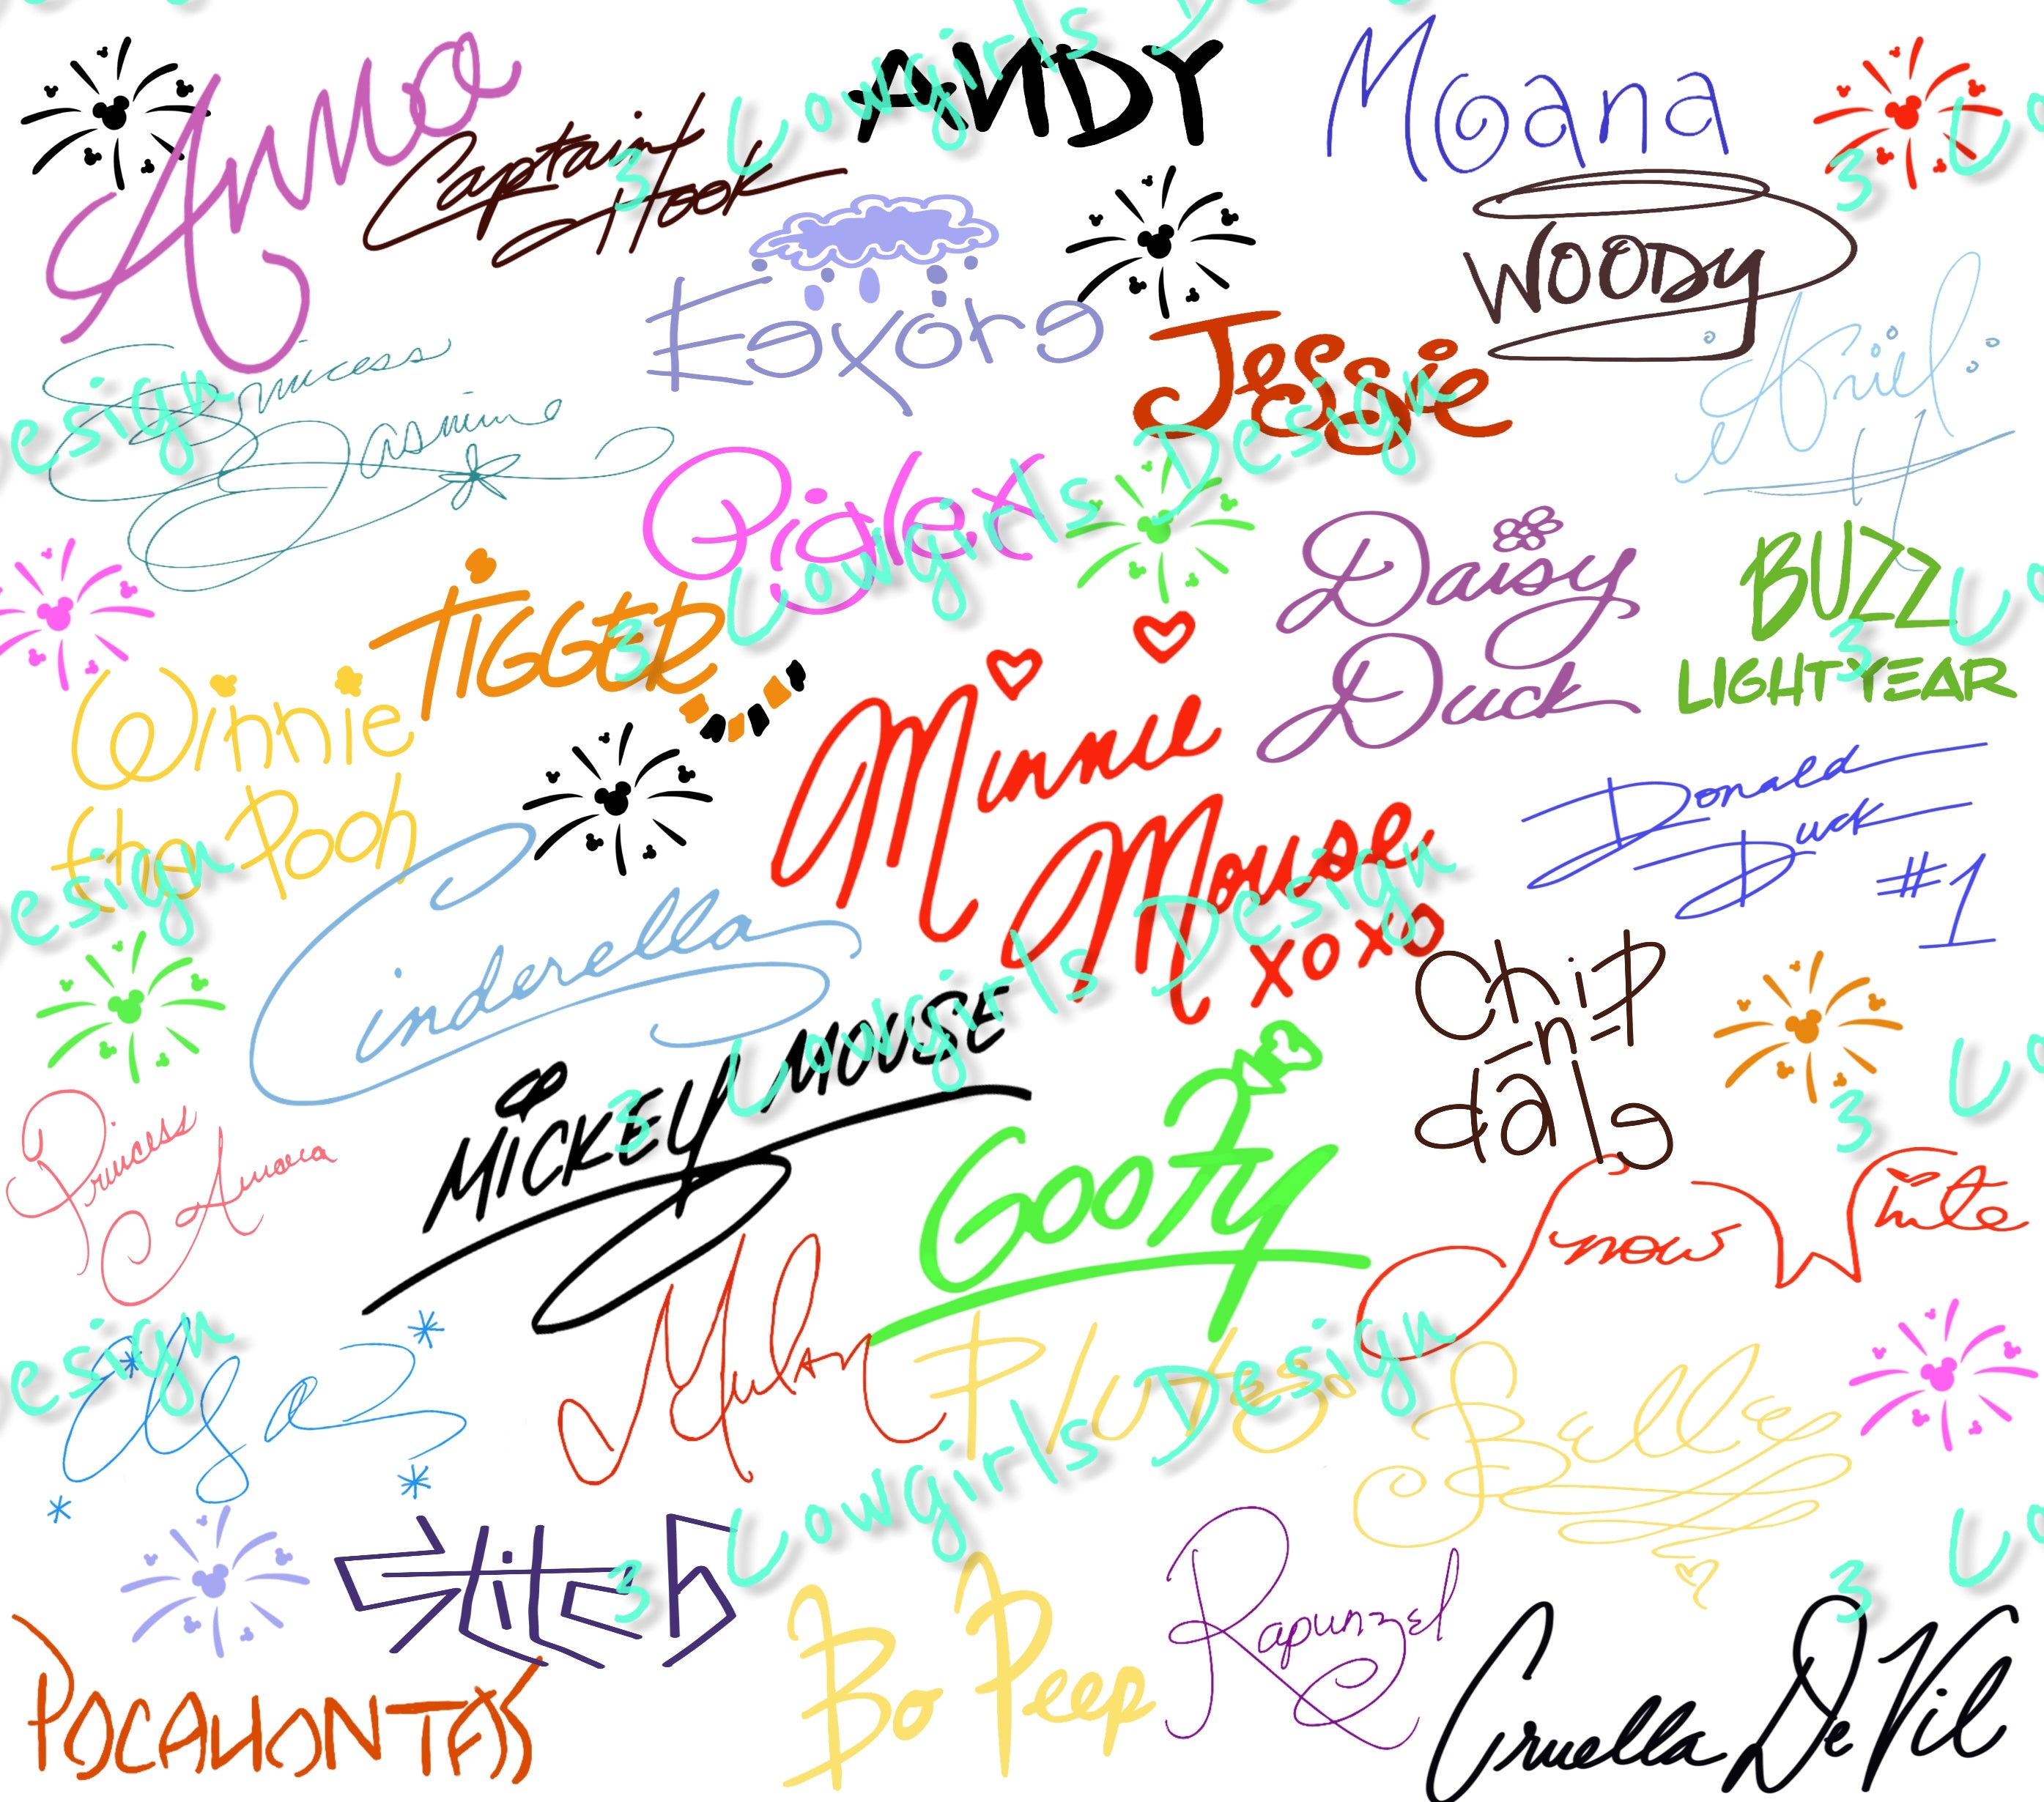 Anna
Captain
Hook
ANDY
Moana
WOODY
Eeyore
Jessie
Ariel
Princess
Jasmine
Piglet
TIGGER
Daisy
Duck
BUZZ
LIGHTYEAR
Winnie
the Pooh
Minnie
Mouse
xoxo
Donald
Duck
#1
Cinderella
Chip
-n-
dale
MICKEY MOUSE
GOOFY
Princess
Aurora
Snow White
Mulan
Pluto
Elsa
Belle
Stitch
Bo Peep
Rapunzel
POCAHONTAS
Cruella De Vil
3 Lowgirls Design
3 Lowgirls Design
3 Lowgirls Design
3 Lowgirls Design
esign
esign
esign
3 Lo
3 Lo
3 Lo
3 Lo